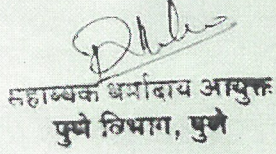 सहाय्यक धर्मादाय आयुक्त
पुणे विभाग, पुणे